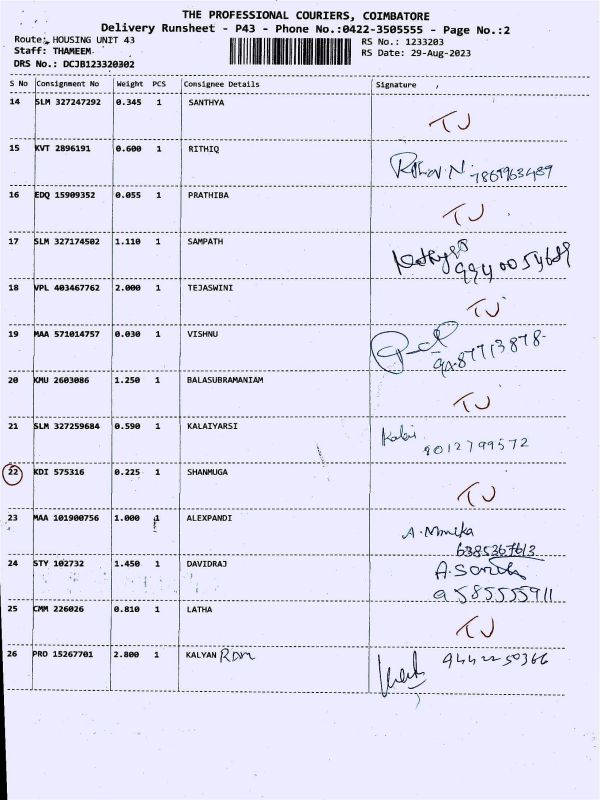 THE PROFESSIONAL COURIERS, COIMBATORE
Delivery Runsheet - P43 - Phone No.:0422-3505555 - Page No.:2
Route: HOUSING UNIT 43 RS No.: 1233203
Staff: THAMEEM RS Date: 29-Aug-2023
DRS No.: DCJB123320302
S No Consignment No Weight PCS Consignee Details Signature
14 SLM 327247292 0.345 1 SANTHYA TJ
15 KVT 2896191 0.600 1 RITHIQ
16 EDQ 15909352 0.055 1 PRATHIBA TJ
17 SLM 327174502 1.110 1 SAMPATH
18 VPL 403467762 2.000 1 TEJASWINI TJ
19 MAA 571014757 0.030 1 VISHNU
20 KMU 2603086 1.250 1 BALASUBRAMANIAM TJ
21 SLM 327259684 0.590 1 KALAIYARSI Kalai
9012799572
22 KDI 575316 0.225 1 SHANMUGA TJ
23 MAA 101900756 1.000 1 ALEXPANDI A.Monika
6385367613
24 STY 102732 1.450 1 DAVIDRAJ
9585555911
25 CMM 226026 0.810 1 LATHA TJ
26 PRO 15267701 2.800 1 KALYAN Ram 9442250366